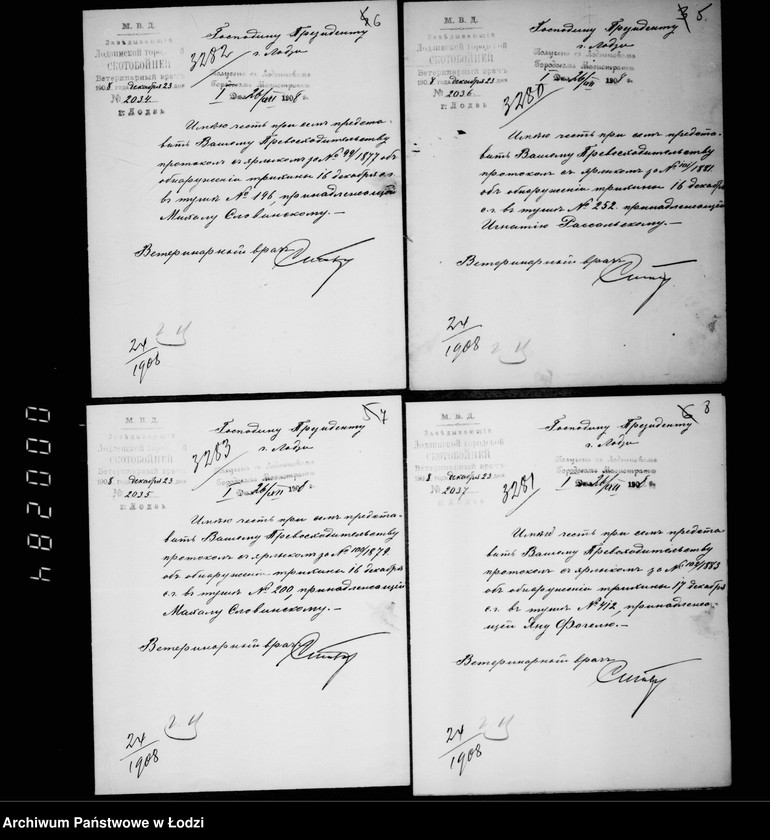 6
М. В. Д.
Завѣдывающій
Лодзинской городской
СКОТОБОЙНЕЙ
Ветеринарный врачъ
1908 года декабря 23 дня
№ 2034
г. Лодзь
Господину Президенту
г. Лодзи
3282
Получено съ Лодзинскомъ
Городскомъ Магистратѣ
1908 г.
Имѣю честь при семъ предста-
вить Вашему Превосходительству
протоколъ съ ярлыкомъ за № 99/1877 объ
обнаруженіи трихины 16 декабря с.г.
въ тушѣ № 196, принадлежащей
Михалу Словинскому. —
Ветеринарный врачъ
24/1908
5.
М. В. Д.
Завѣдывающій
Лодзинской городской
СКОТОБОЙНЕЙ
Ветеринарный врачъ
1908 года декабря 23 дня
№ 2036
г. Лодзь
Господину Президенту
г. Лодзи
Получено съ Лодзинскомъ
Городскомъ Магистратѣ
1908 г.
3280
Имѣю честь при семъ предста-
вить Вашему Превосходительству
протоколъ съ ярлыкомъ за № 101/1881
объ обнаруженіи трихины 16 декабря
с.г. въ тушѣ № 252 принадлежащей
Игнатію Рассальскому. —
Ветеринарный врачъ
24/1908
5 7
М. В. Д.
Завѣдывающій
Лодзинской городской
СКОТОБОЙНЕЙ
Ветеринарный врачъ
1908 года декабря 23 дня
№ 2035
г. Лодзь
Господину Президенту
г. Лодзи
3283
Получено съ Лодзинскомъ
Городскомъ Магистратѣ
1908 г.
Имѣю честь при семъ предста-
вить Вашему Превосходительству
протоколъ съ ярлыкомъ за № 100/1879.
объ обнаруженіи трихины 16 декабря
с.г. въ тушѣ № 200, принадлежащей
Михалу Словинскому. —
Ветеринарный врачъ
24/1908
6 8
М. В. Д.
Завѣдывающій
Лодзинской городской
СКОТОБОЙНЕЙ
Ветеринарный врачъ
1908 года декабря 23 дня
№ 2037
Господину Президенту
г. Лодзи
Получено съ Лодзинскомъ
Городскомъ Магистратѣ
1908 г.
3281
Имѣю честь при семъ предста-
вить Вашему Превосходительству
протоколъ съ ярлыкомъ за № 102/1883
объ обнаруженіи трихины 17 декабря
с.г. въ тушѣ № 412, принадлежа-
щей Яну Фогелю. —
Ветеринарный врачъ
24/1908
000284
Archiwum Państwowe w Łodzi